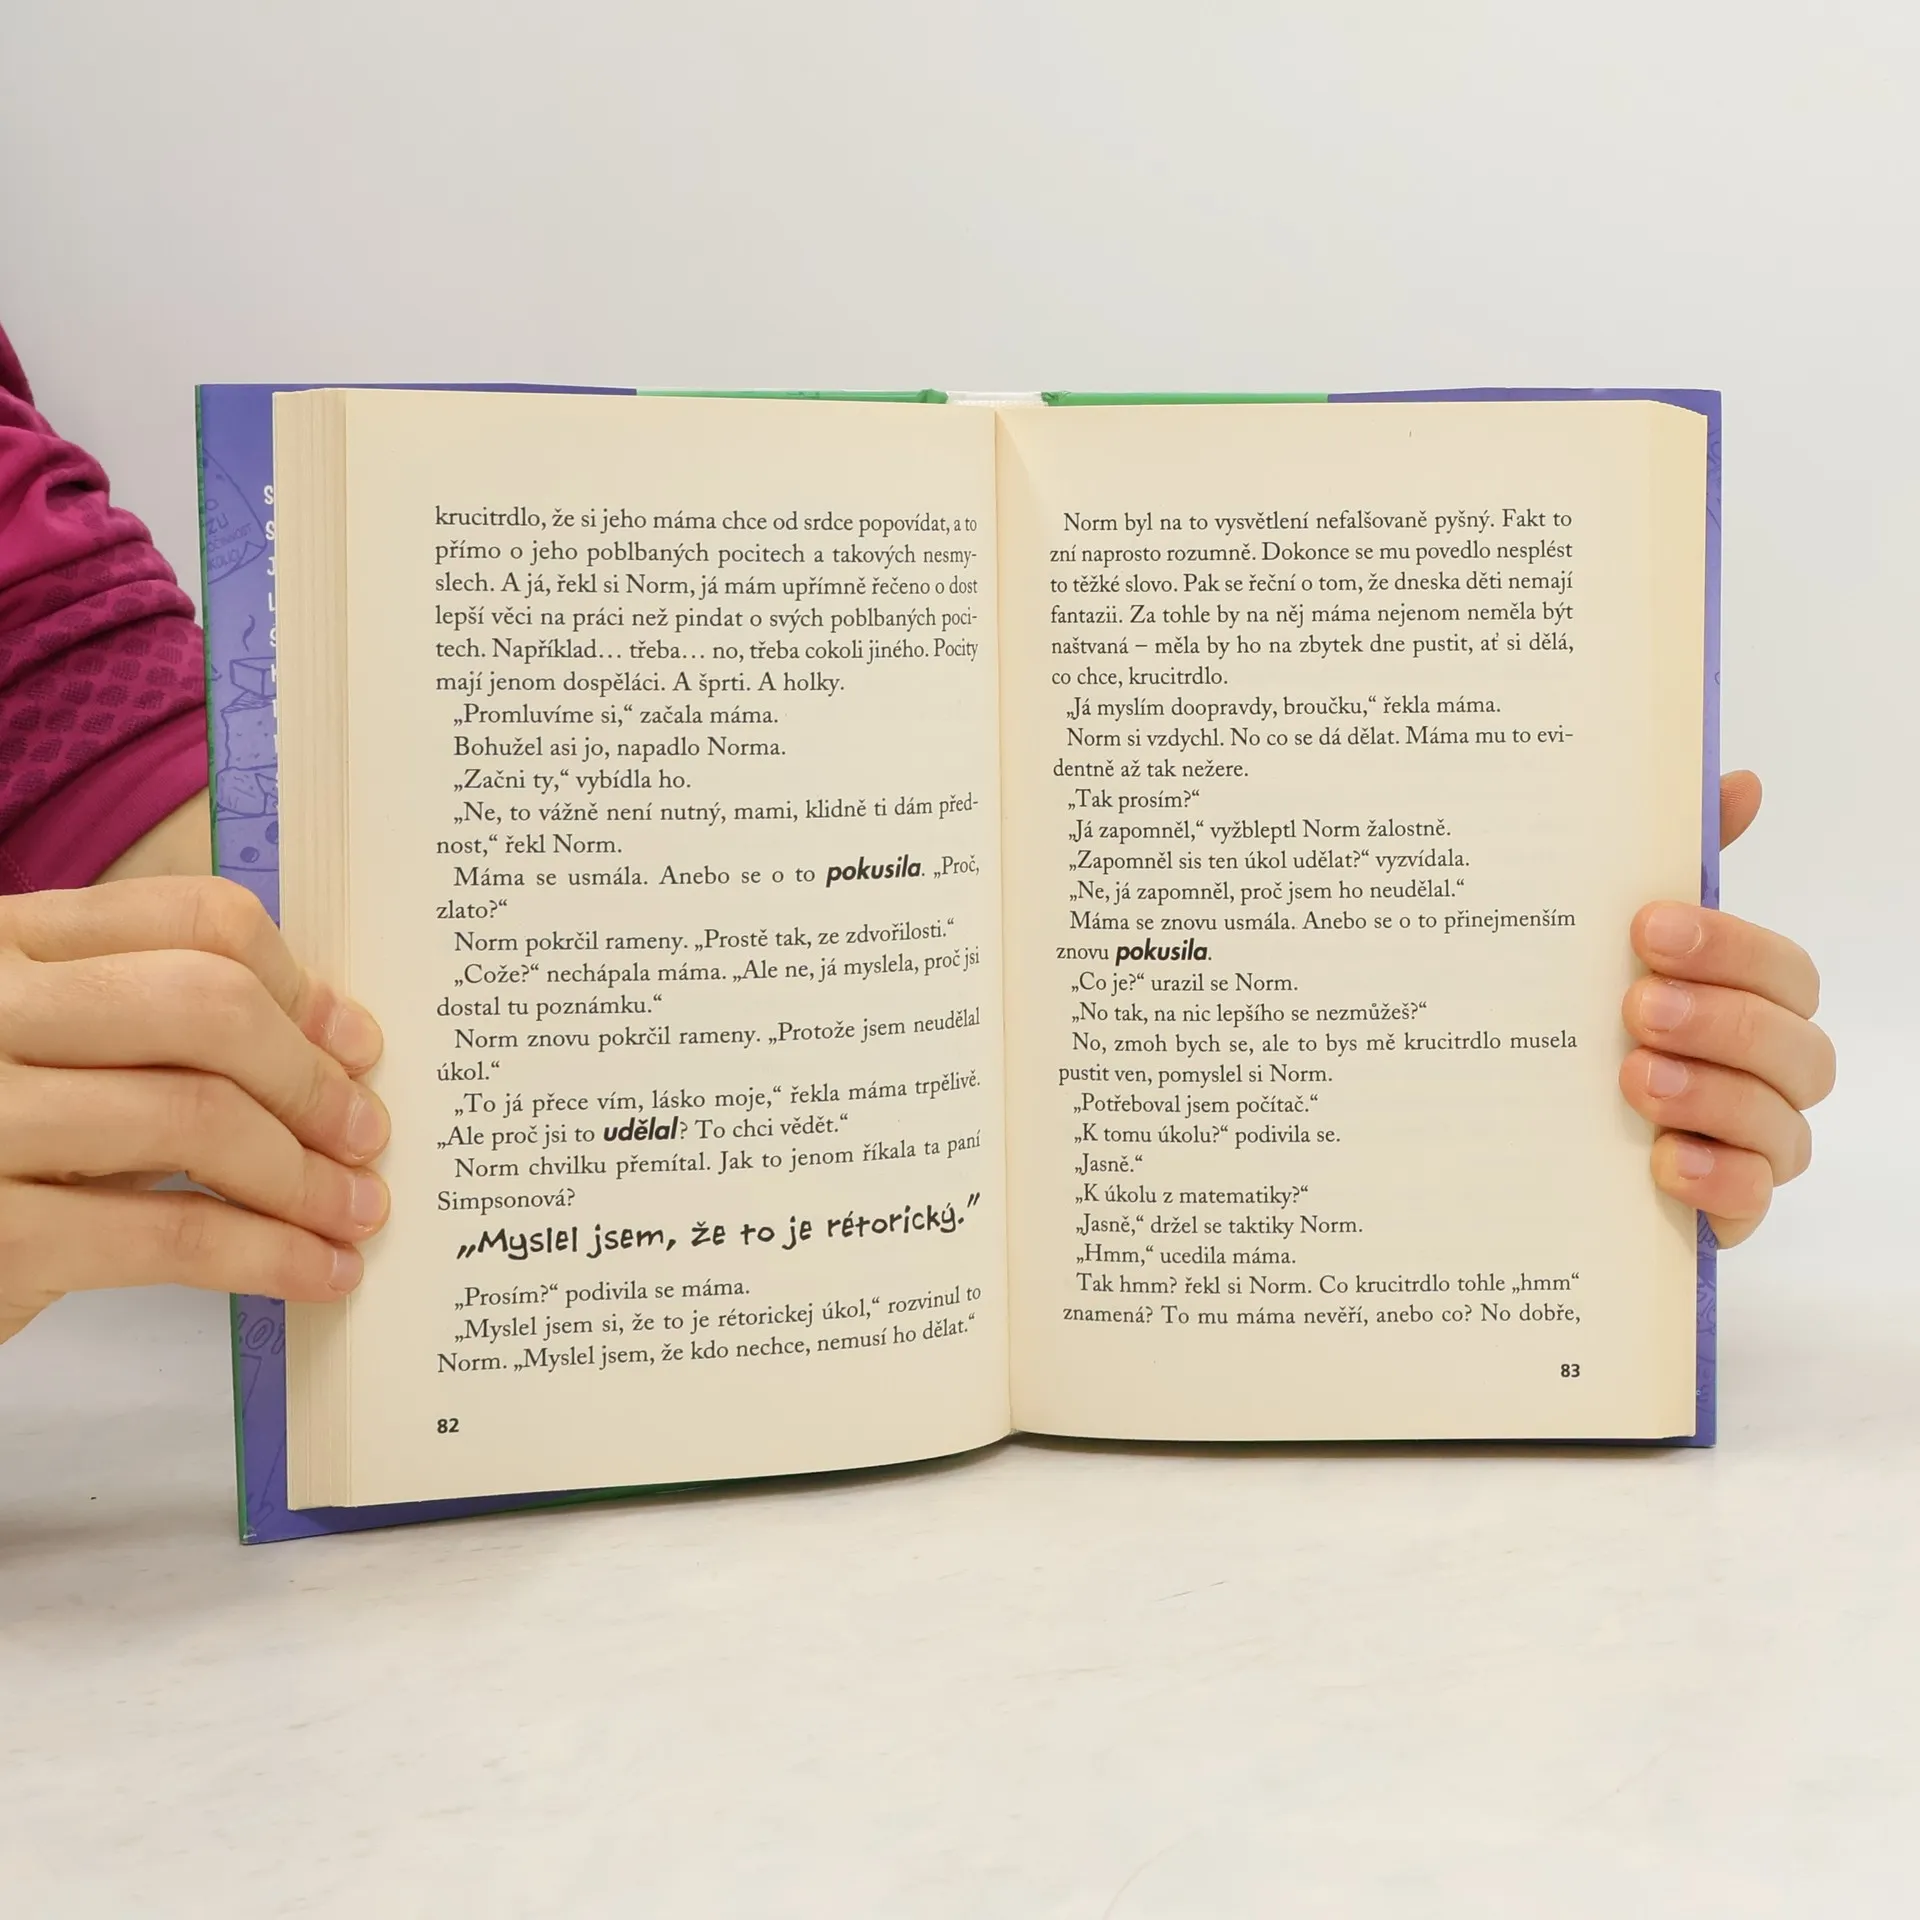 krucitrdlo, že si jeho máma chce od srdce popovídat, a to
přímo o jeho poblbaných pocitech a takových nesmy-
slech. A já, řekl si Norm, já mám upřímně řečeno o dost
lepší věci na práci než pindat o svých poblbaných poci-
tech. Například… třeba… no, třeba cokoli jiného. Pocity
mají jenom dospěláci. A šprti. A holky.
„Promluvíme si,“ začala máma.
Bohužel asi jo, napadlo Norma.
„Začni ty,“ vybídla ho.
„Ne, to vážně není nutný, mami, klidně ti dám před-
nost,“ řekl Norm.
Máma se usmála. Anebo se o to pokusila. „Proč,
zlato?“
Norm pokrčil rameny. „Prostě tak, ze zdvořilosti.“
„Cože?“ nechápala máma. „Ale ne, já myslela, proč jsi
dostal tu poznámku.“
Norm znovu pokrčil rameny. „Protože jsem neudělal
úkol.“
„To já přece vím, lásko moje,“ řekla máma trpělivě.
„Ale proč jsi to udělal? To chci vědět.“
Norm chvilku přemítal. Jak to jenom říkala ta paní
Simpsonová?
„Myslel jsem, že to je rétorický.”
„Prosím?“ podivila se máma.
„Myslel jsem si, že to je rétorickej úkol,“ rozvinul to
Norm. „Myslel jsem, že kdo nechce, nemusí ho dělat.“
82
Norm byl na to vysvětlení nefalšovaně pyšný. Fakt to
zní naprosto rozumně. Dokonce se mu povedlo nesplést
to těžké slovo. Pak se řeční o tom, že dneska děti nemají
fantazii. Za tohle by na něj máma nejenom neměla být
naštvaná – měla by ho na zbytek dne pustit, ať si dělá,
co chce, krucitrdlo.
„Já myslím doopravdy, broučku,“ řekla máma.
Norm si vzdychl. No co se dá dělat. Máma mu to evi-
dentně až tak nežere.
„Tak prosím?“
„Já zapomněl,“ vyžbleptl Norm žalostně.
„Zapomněl sis ten úkol udělat?“ vyzvídala.
„Ne, já zapomněl, proč jsem ho neudělal.“
Máma se znovu usmála. Anebo se o to přinejmenším
znovu pokusila.
„Co je?“ urazil se Norm.
„No tak, na nic lepšího se nezmůžeš?“
No, zmoh bych se, ale to bys mě krucitrdlo musela
pustit ven, pomyslel si Norm.
„Potřeboval jsem počítač.“
„K tomu úkolu?“ podivila se.
„Jasně.“
„K úkolu z matematiky?“
„Jasně,“ držel se taktiky Norm.
„Hmm,“ ucedila máma.
Tak hmm? řekl si Norm. Co krucitrdlo tohle „hmm“
znamená? To mu máma nevěří, anebo co? No dobře,
83